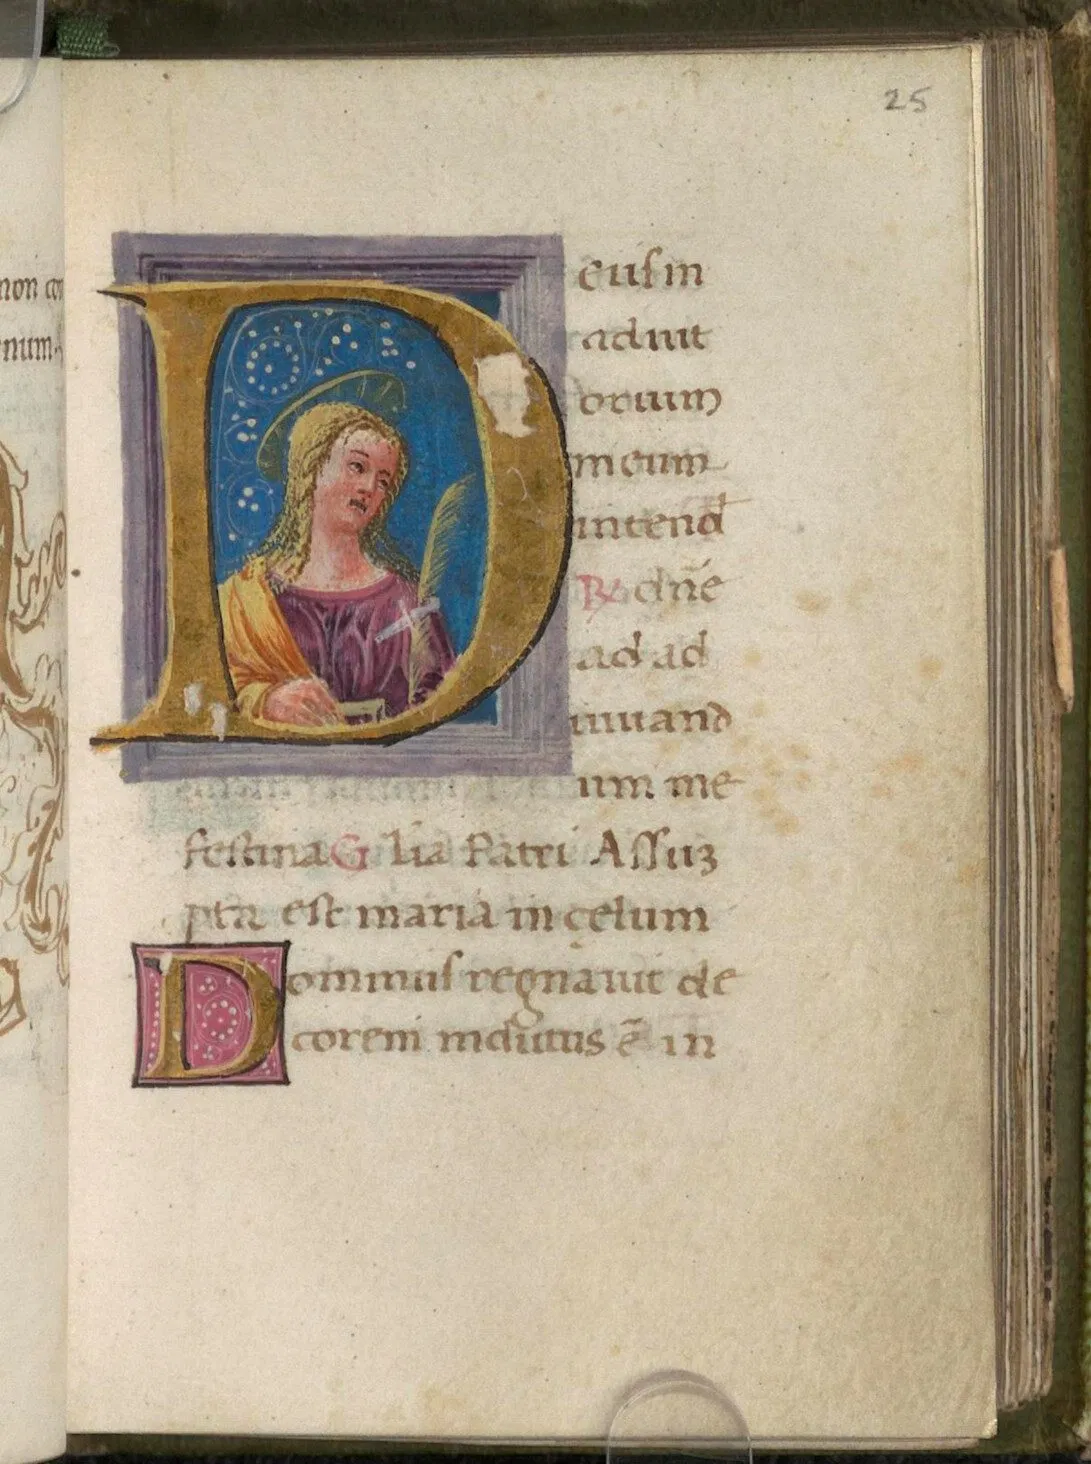 25
non co
num
Deus in
adiut
orium
meum
intend
R dn̄e
ad ad
iuuand
um me
festina Glia Patri Assuʒ
pta est maria in çelum
Dominus regnauit de
corem indutus ē in